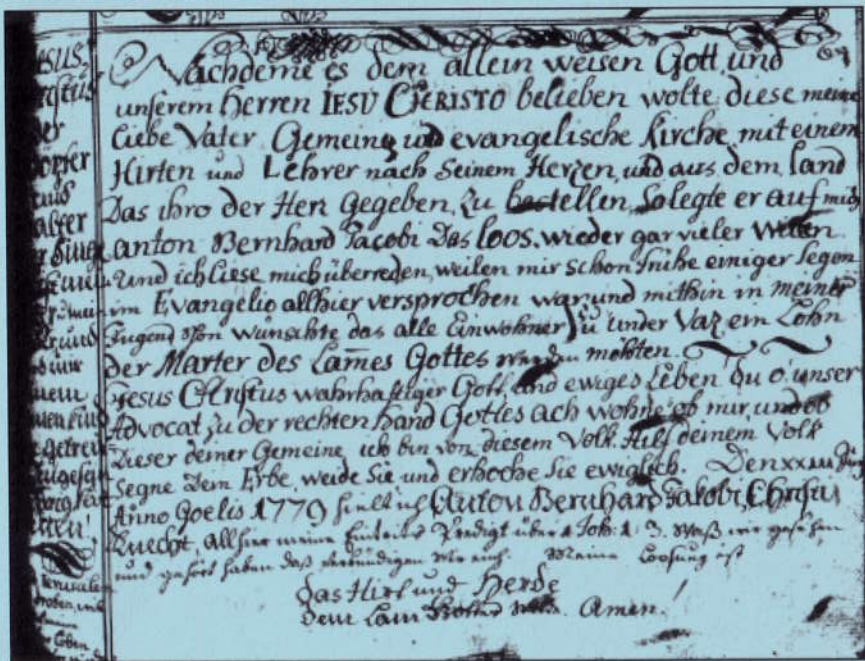 esus
Nachdeme es dem allein weisen Gott und
unserem Herren IESU CHRISTO belieben wolte diese meine
liebe Vater Gemeine und evangelische Kirche mit einem
Hirten und Lehrer nach Seinem Herzen, und aus dem land
Das ihro der Herr Gegeben, Zu bestellen, So legte er auf mich
anton Bernhard Jacobi Das loos. wieder gar vieler Willen
und ich liese mich überreden, weilen mir schon frühe einiger Segen
im Evangelio allhier versprochen war, und mithin in meiner
Jugend schon wünschte das alle Einwohner zu under Vaz ein Lohn
der Marter des Lam̄es Gottes werden möhten.
Jesus CHristus wahrhaftiger Gott, und ewiges Leben du o! unser
Advocat zu der rechten hand Gottes ach wohne ob mir und ob
Dieser deiner Gemeine, ich bin von diesem Volk. Hilf deinem Volk
Segne Dein Erbe, weide Sie und erhoche Sie ewiglich. Den
Anno 1779 hielt ich Anton Bernhard Jacobi, Christi
Knecht, allhier meine Eintritts Predigt über 1 Joh: 1: 3. Waß wir gesehen
und gehört haben daß verkündigen wir euch. Meine Loosung ist
das Hirt und Herde
dem Lam Amen!